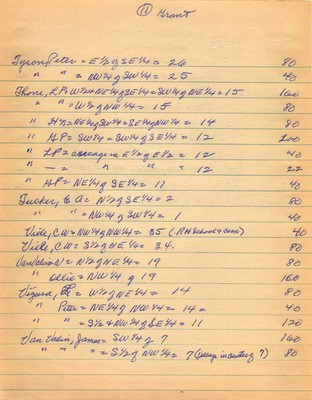 11 Grant
Tyson, Peter = E½ of SE¼ = 26 80
" " = NW¼ of SW¼ = 25 40
Thone, L.P. W½ + NE¼ of SE¼ = SW¼ of NE¼ = 15 160
" " = W½ of NW¼ = 15 80
" = NE¼ of SW¼ = SE¼ of NW¼ = 14 80
" = SW¼ = SW¼ of SE¼ = 12 200
" LP = E½ of E½ = 12 40
" — = " " " 12 22
" = NE¼ of SE¼ = 11 40
Tucker, E A = N½ of SE¼ = 2 80
" " = NW¼ of SW¼ = 1 40
Viele, CW = NW¼ of NW¼ = 35 40
Viele, CW = S½ of NE¼ = 34. 80
N = N½ of NE¼ = 19 80
" Ollie = NW¼ of 19 160
= W½ of NE¼ = 14 80
" Peter = NE¼ of NW¼ = 14 = 40
" " = S½ + NW¼ of SE¼ = 11 120
Van Vulin, James = SW¼ of 7 160
" " " = S½ of NW¼ = 7 80